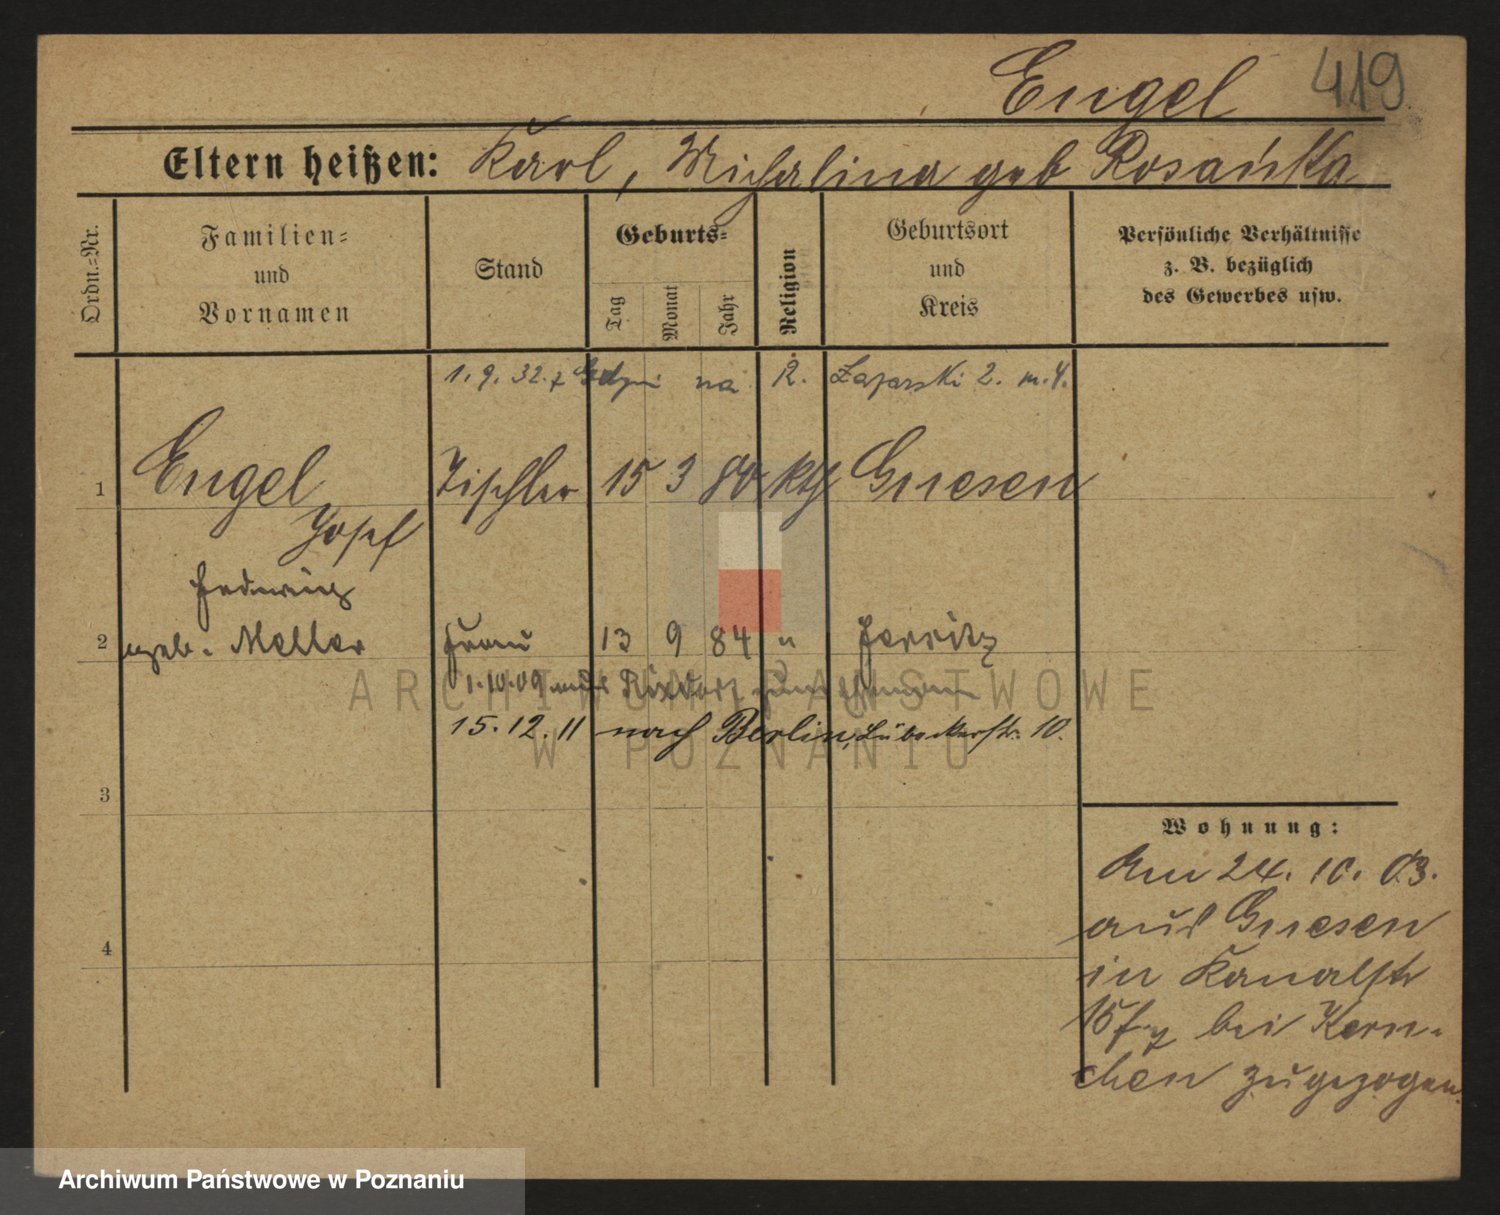 Engel 419
Eltern heißen: Karl, Michalina geb Rosańka
Ordn.=Nr.
Familien=
und
Vornamen
Stand
Geburts=
Tag
Monat
Jahr
Religion
Geburtsort
und
Kreis
Persönliche Verhältnisse
z. B. bezüglich
des Gewerbes usw.
1.9.32. z Gdyni na R. Łazarski 2. m. 4.
1 Engel Tischler 15 3 80 kth Gnesen
Josef
Hedwig
2 geb. Meller Frau 13 9 84 " Jerzitz
1.10.09 nach Rixdorf
15.12.11 nach Berlin, Lübeckerstr. 10.
3
4
Wohnung:
Am 24. 10. 03.
aus Gnesen
in Kanalstr
15 bei Kern-
chen zugezogen.
ARCHIWUM PAŃSTWOWE
W POZNANIU
Archiwum Państwowe w Poznaniu